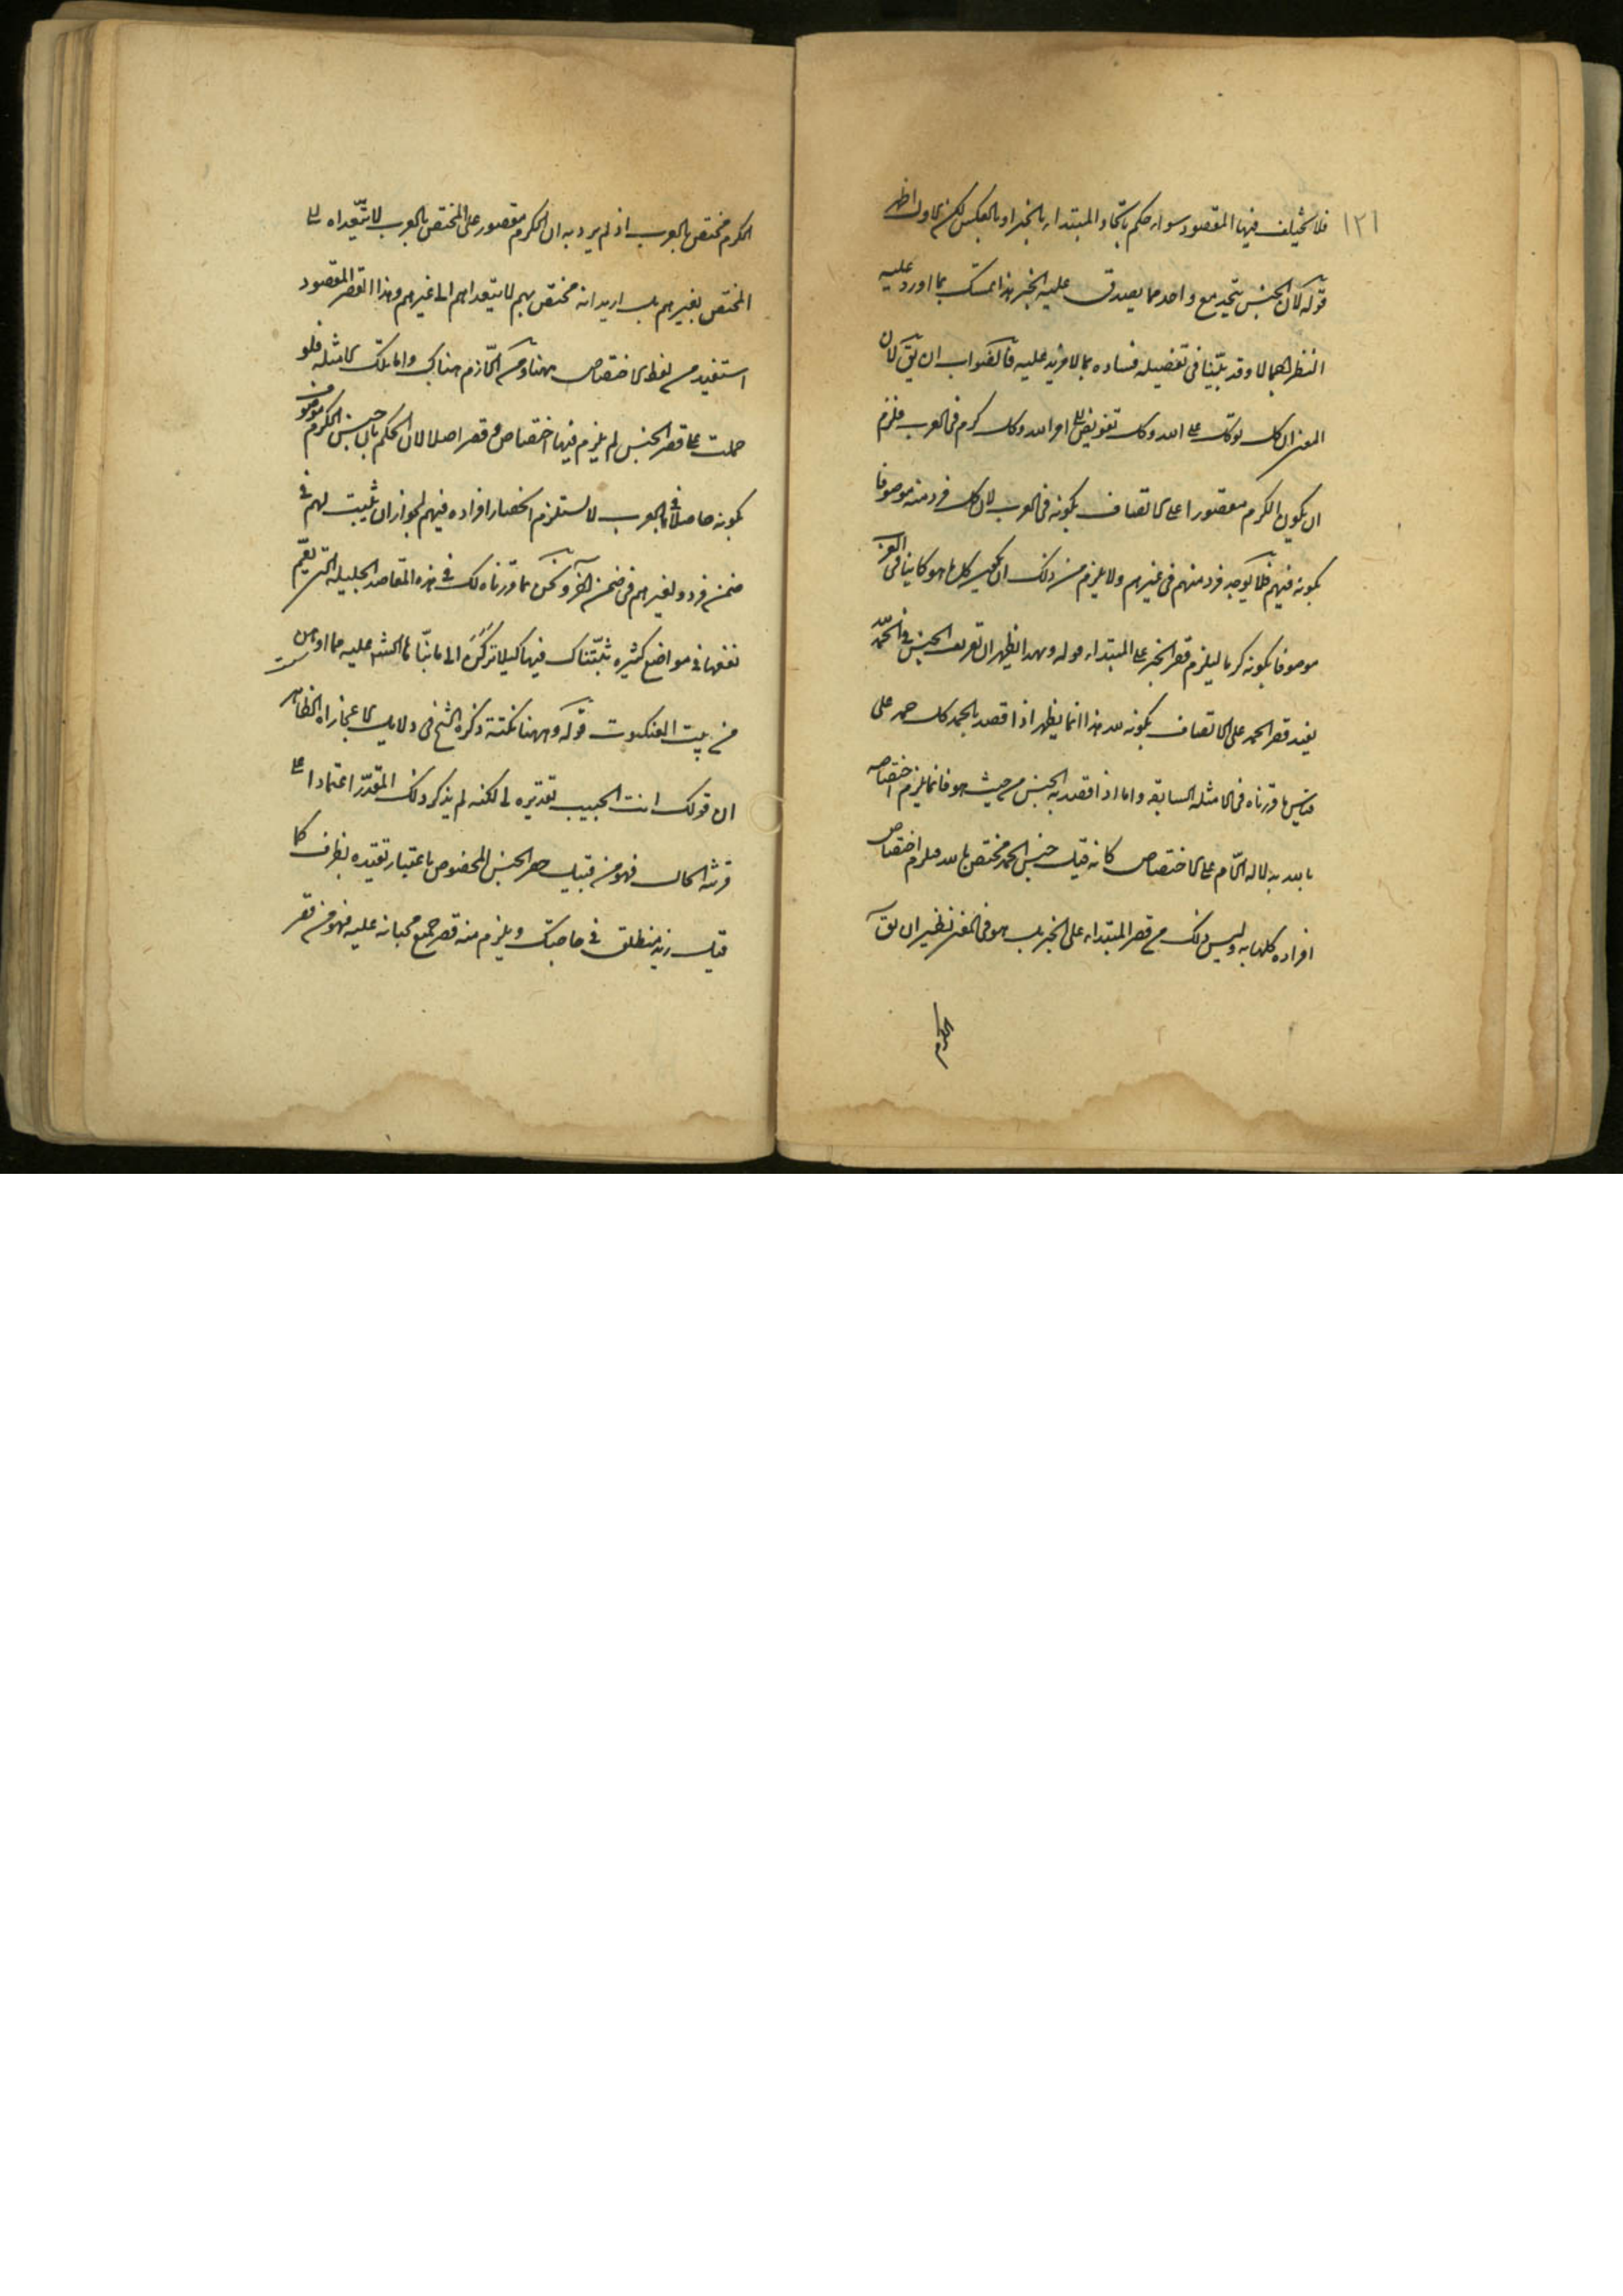 ١٢١
فلا يختلف فيها المقصود سواء حكم باتحاد المبتداء بالخبر او بالعكس لكن الاول اظهر
قوله لان الجنس يتحد مع واحد مما يصدق عليه الخبر هذا تمسك بما اورد عليه
النظر اجمالا وقد بيّنا في تفصيله فساده بما لا مزيد عليه فالصواب ان يق لان
المعنى ان كل توكل على الله وكل تفويض الى امر الله وكل كرم في العرب فلزم
ان يكون الكرم مقصورا على الاتصاف بكونه في العرب لان كل فرد منه موصوفا
بكونه فيهم فلا يوجد فرد منهم في غيرهم ولا يلزم من ذلك ان يكون كل ما هو كاين في العرب
موصوفا بكونه كرما ليلزم قصر الخبر على المبتداء قوله وبهذا يظهر ان تعريف الجنس في الحمد لله
يفيد قصر الحمد على الاتصاف بكونه لله هذا انما يظهر اذا قصد بالحمد كل حمد على
قياس ما قررناه في الامثلة السابقة واما اذا قصد به الجنس من حيث هو فانما يلزم اختصاصه
بالله بدلالة اللام على الاختصاص كانه قيل جنس الحمد مختص بالله فيلزم اختصاص
افراده كلها به وليس ذلك من قصر المبتداء على الخبر بل هو في المعنى نظير ان يق
الكرم
الكرم مختص بالعرب اذ لم يرد به ان الكرم مقصور على المختص بالعرب لا يتعداه الى
المختص بغيرهم بل اريد انه مختص بهم لا يتعداهم الى غيرهم وهذا القصر المقصود
استفيد من لفظ الاختصاص ههنا ومن اللازم هناك واما تلك الامثلة فلو
حملت على قصر الجنس لم يلزم فيها اختصاص وقصر اصلا لان الحكم بان جنس الكرم موصوف
بكونه حاصلا في العرب لا يستلزم انحصار افراده فيهم لجواز ان يثبت لهم في
ضمن فرد ولغيرهم في ضمن آخر ونحن بما قررناه لك في هذه المقاصد الجليلة التي تعم
نفعها في مواضع كثيرة ثبّتناك فيها كيلا تركن الى ما بنا الش عليه مما اوهن
من بيت العنكبوت قوله وههنا نكتة ذكره الشيخ في دلايل الاعجاز اه الظاهر
ان قولك انت الحبيب تقديره لي لكنه لم يذكر ذلك المقدّر اعتمادا على
قرينة الحال فهو من قبيل حصر الجنس المخصوص باعتبار تقيّده بظرف كما
قيل زيد منطلق في حاجتك ويلزم منه قصر جميع محباته عليه فهو من قصر